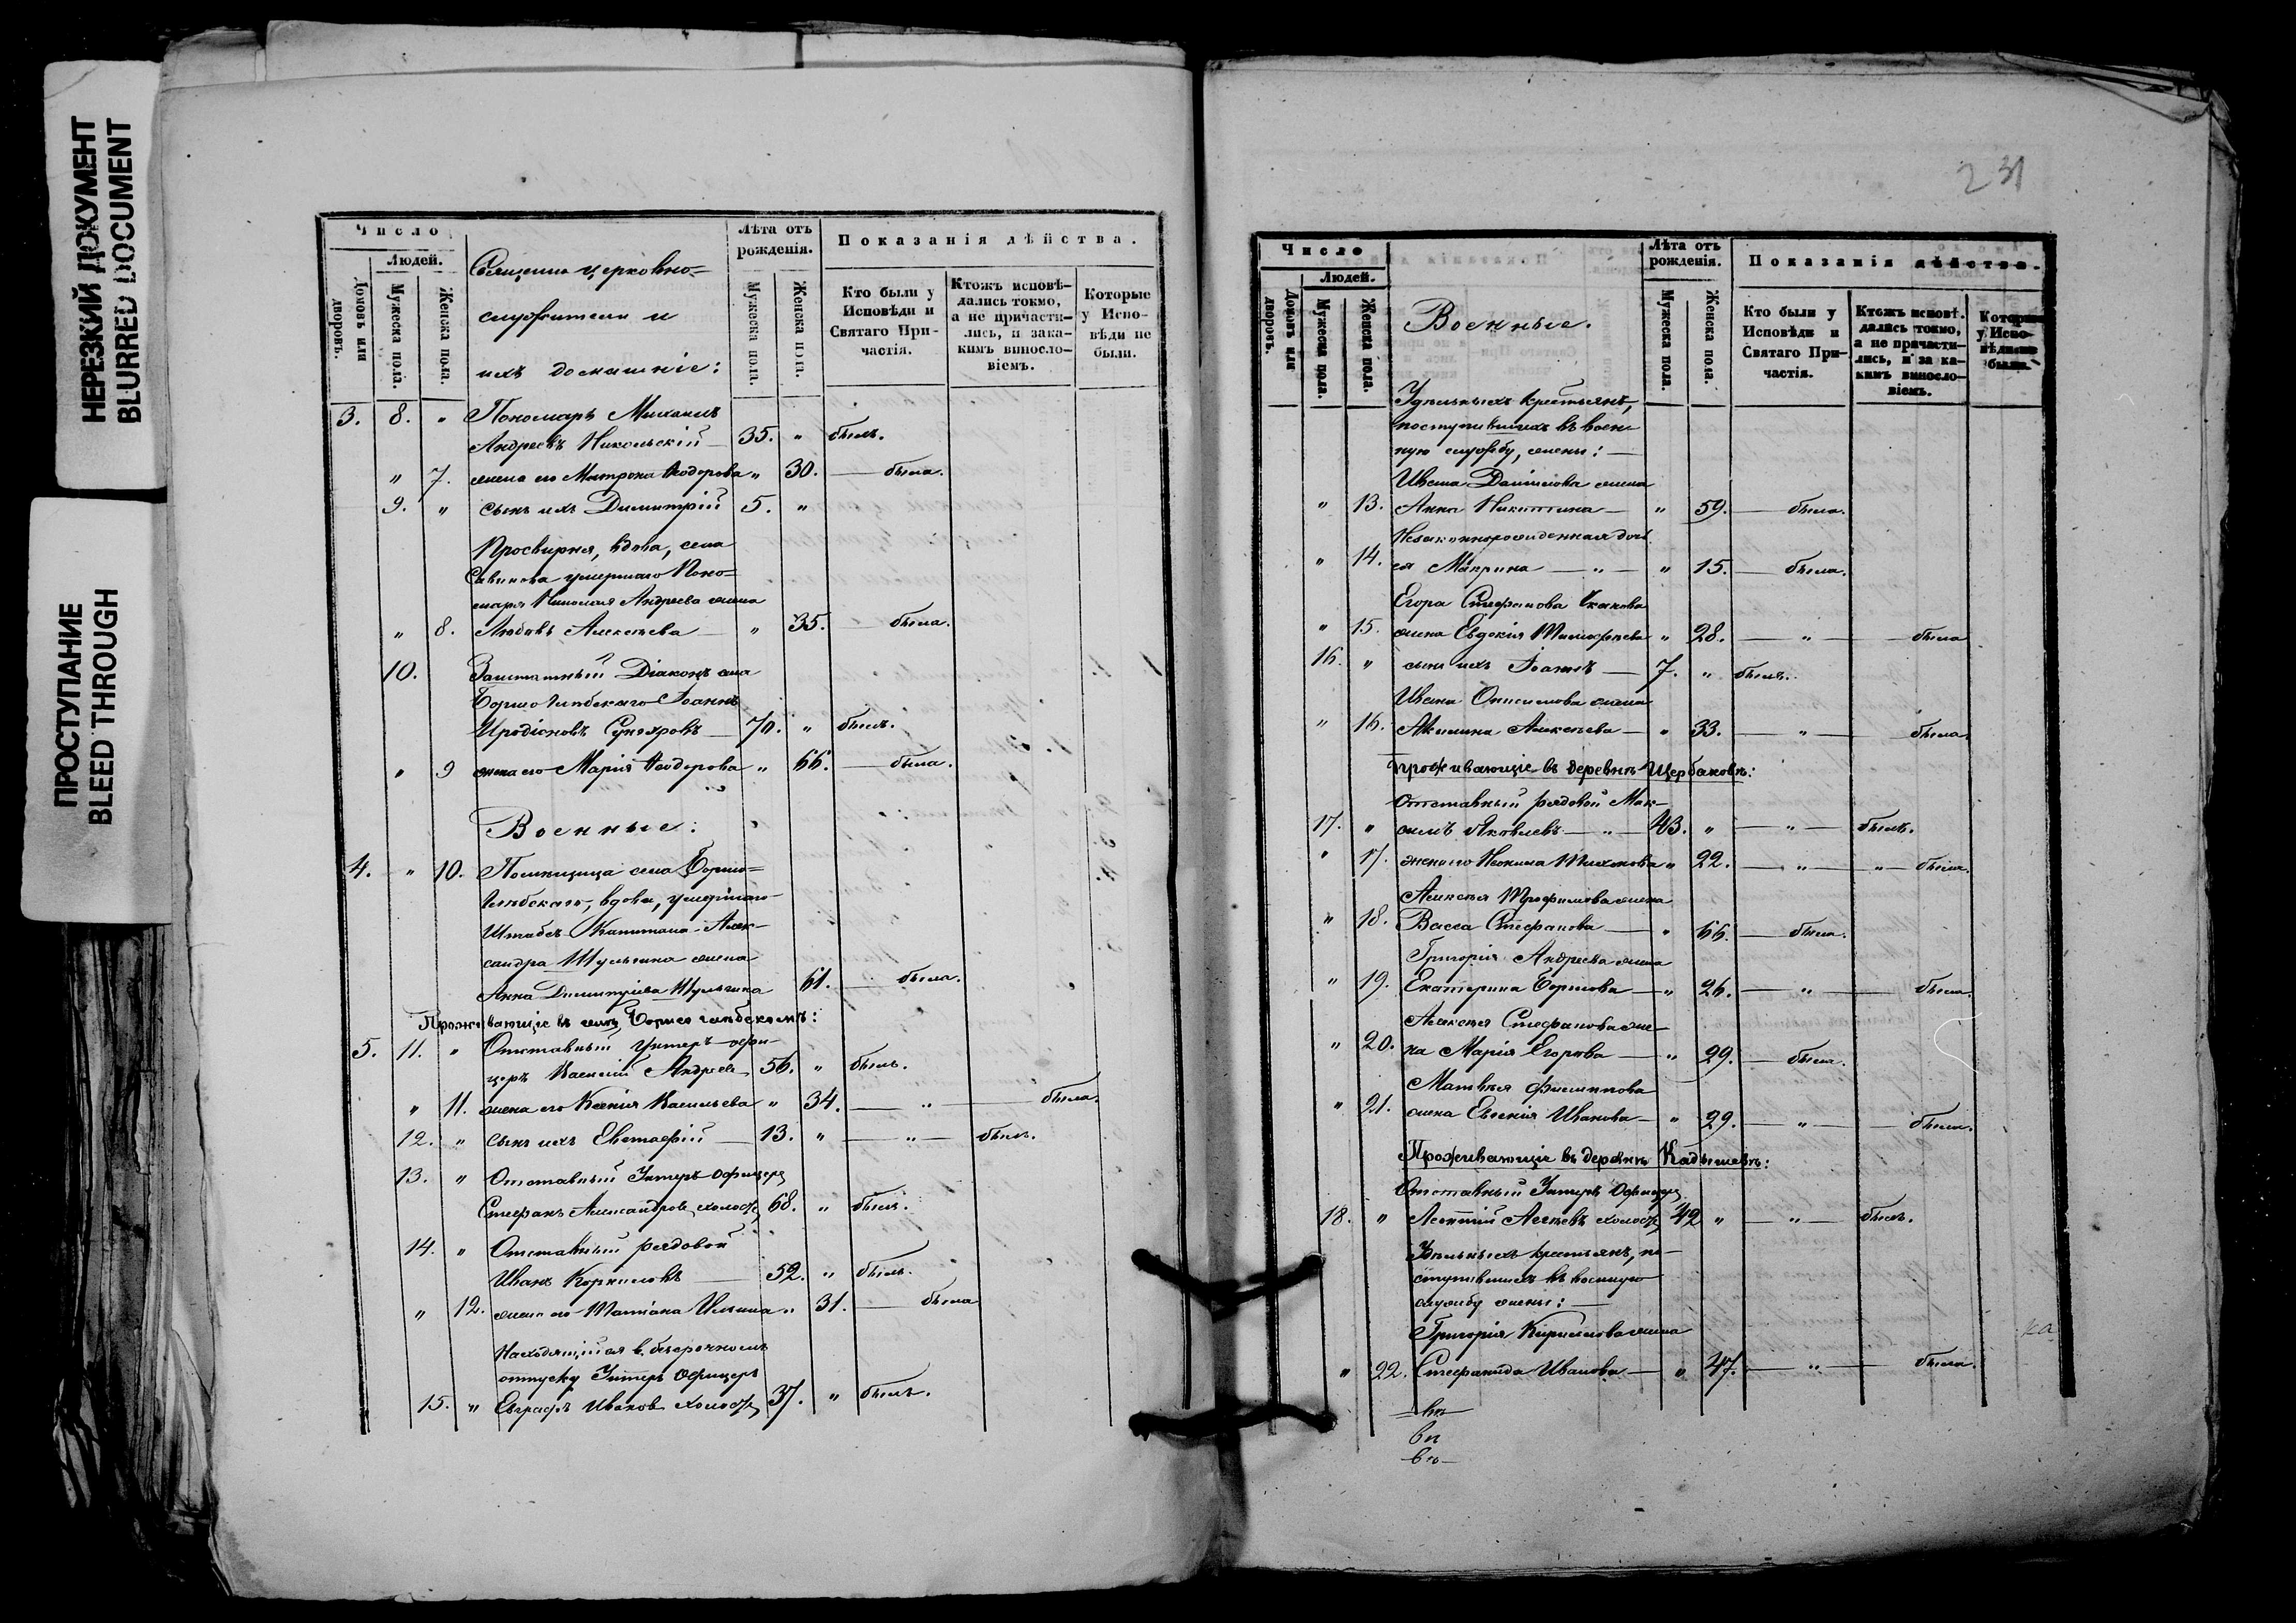 НЕРЕЗКИЙ ДОКУМЕНТ
BLURRED DOCUMENT
ПРОСТУПАНИЕ
BLEED THROUGH
Число
Людей.
Домовъ или дворовъ.
Мужеска пола.
Женска пола.
Священно церковно=
служители и
ихъ домашніе:
Лѣта отъ рожденія.
Мужеска пола.
Женска пола.
Показанія дѣйства.
Кто были у Исповѣди и Святаго Причастія.
Ктожъ исповѣдались токмо, а не причастились, и за какимъ винословіемъ.
Которые у Исповѣди не были.
3. 8. " Пономарь Михаилъ
Андреевъ Никольскій 35. " былъ.
" 7. жена его Матрона Ѳеодорова " 30. была.
9. " сынъ ихъ Димитрій 5. "
Просвирня, вдова, села
умершаго Поно=
маря Николая Андреева жена
" 8. Любовь Алексѣева " 35. была.
10. Заштатный Діаконъ села
Борисоглѣбскаго Іоаннъ
Иродіоновъ 70. " былъ.
" 9 жена его Марія Ѳеодорова " 66. была.
Военные:
4. " 10. Помѣщица села Борисо=
глѣбскаго, вдова, умершаго
Штабсъ-Капитана Алек-
сандра Шульгина жена
Анна Димитріева Шульгина 61. была.
Проживающіе въ селѣ Борисоглѣбскомъ:
5. 11. " Отставный Унтеръ-офи-
церъ Василій Андреевъ 56. " былъ.
" 11. жена его Ксенія Васильева " 34. " была.
12. " сынъ ихъ Евстафій 13. " " былъ.
13. " Отставный Унтеръ Офицеръ
Стефанъ Александровъ холостъ 68. " былъ.
14. " Отставный рядовой
Иванъ Корниловъ 52. " былъ.
" 12. жена его Татіана Ильина " 31. была
Находящійся в безсрочномъ
отпуску Унтеръ Офицеръ
15. " Евграфъ Ивановъ холостъ 37. " былъ.
231
Число
Людей.
Домовъ или дворовъ.
Мужеска пола.
Женска пола.
Военные.
Лѣта отъ рожденія.
Мужеска пола.
Женска пола.
Показанія дѣйства.
Кто были у Исповѣди и Святаго Причастія.
Ктожъ исповѣдались токмо, а не причастились, и за какимъ винословіемъ.
Которые у Исповѣди не были.
Удѣльныхъ крестьянъ,
поступившихъ въ воен-
ную службу, жены:
Ивана Данилова жена
" 13. Анна Никитина " 59. была.
Незаконнорожденная дочь
" 14. ея Макрина " " 15. была.
Егора Стефанова
" 15. жена Евдокія Тимофѣева " 28. " была
16. " сынъ ихъ Іоаннъ 7. " былъ.
Ивана Онисимова жена
" 16. Акилина Алексѣева " 33. " была.
Проживающіе въ деревнѣ Щербаковѣ:
Отставный рядовой Мак-
17. " симъ Яковлевъ " 43. " " былъ.
" 17. жена его Тихонова " 22. " " была.
Алексѣя Трофимова жена
" 18. Васса Стефанова " 66. была.
Григорія Андреева жена
" 19. Екатерина Борисова " 26. " была.
Алексѣя Стефанова же-
" 20. на Марія Егорова " 29. была.
Матвѣя Филиппова
" 21. жена Евгенія Иванова " 29. " была.
Проживающіе въ деревнѣ Кадышевѣ:
Отставный Унтеръ Офицеръ
18. " Леонтій холостъ 42 " " былъ.
Удѣльныхъ крестьянъ, по-
ступившихъ въ военную
службу жены:
Григорія Кириллова жена
" 22. Стефанида Иванова " 47. " была.